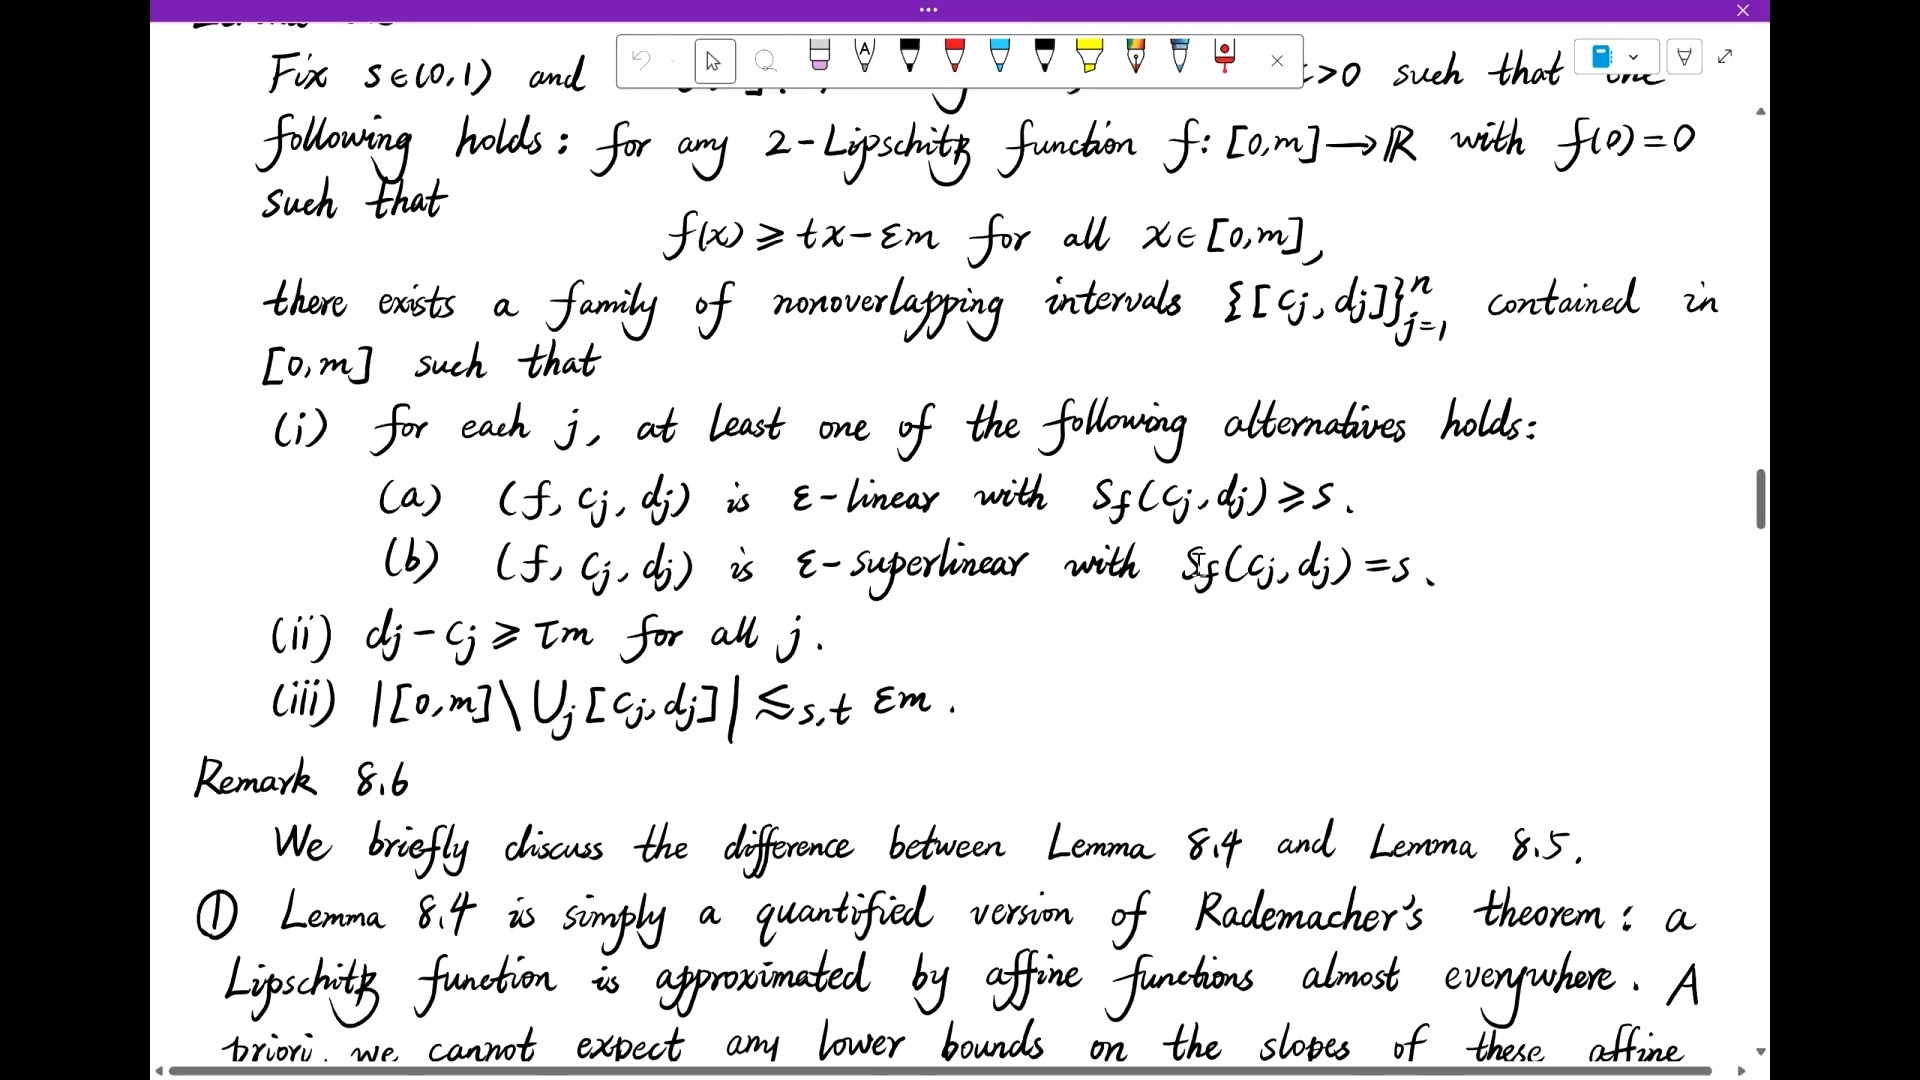 Fix s∈(0,1) and >0 such that
following holds: for any 2-Lipschitz function f: [0,m]→ℝ with f(0)=0
such that
f(x) ≥ tx-εm for all x∈[0,m],
there exists a family of nonoverlapping intervals {[cj, dj]}ⁿ_{j=1} contained in
[0,m] such that
(i) for each j, at least one of the following alternatives holds:
(a) (f, cj, dj) is ε-linear with Sf(cj, dj) ≥ s.
(b) (f, cj, dj) is ε-superlinear with Sf(cj, dj) = s.
(ii) dj - cj ≥ τm for all j.
(iii) |[0,m]\⋃j [cj, dj]| ≲s,t εm.
Remark 8.6
We briefly discuss the difference between Lemma 8.4 and Lemma 8.5.
① Lemma 8.4 is simply a quantified version of Rademacher's theorem: a
Lipschitz function is approximated by affine functions almost everywhere. A
priori, we cannot expect any lower bounds on the slopes of these affine